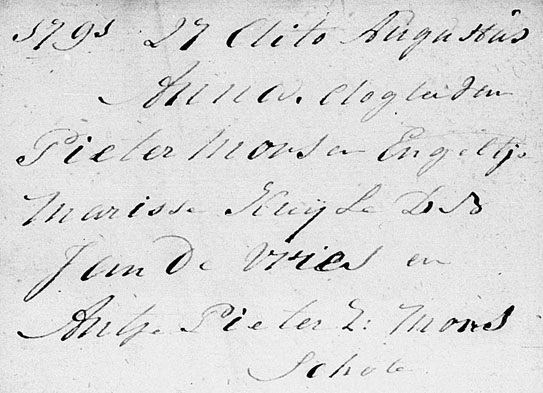 1791 27 dito Augustus
Anna. dogter van
Pieter Mors en Engeltje
Marisse Kruyse DB
Jan De Vries en
Antje Pieter Z: Mors
Schote